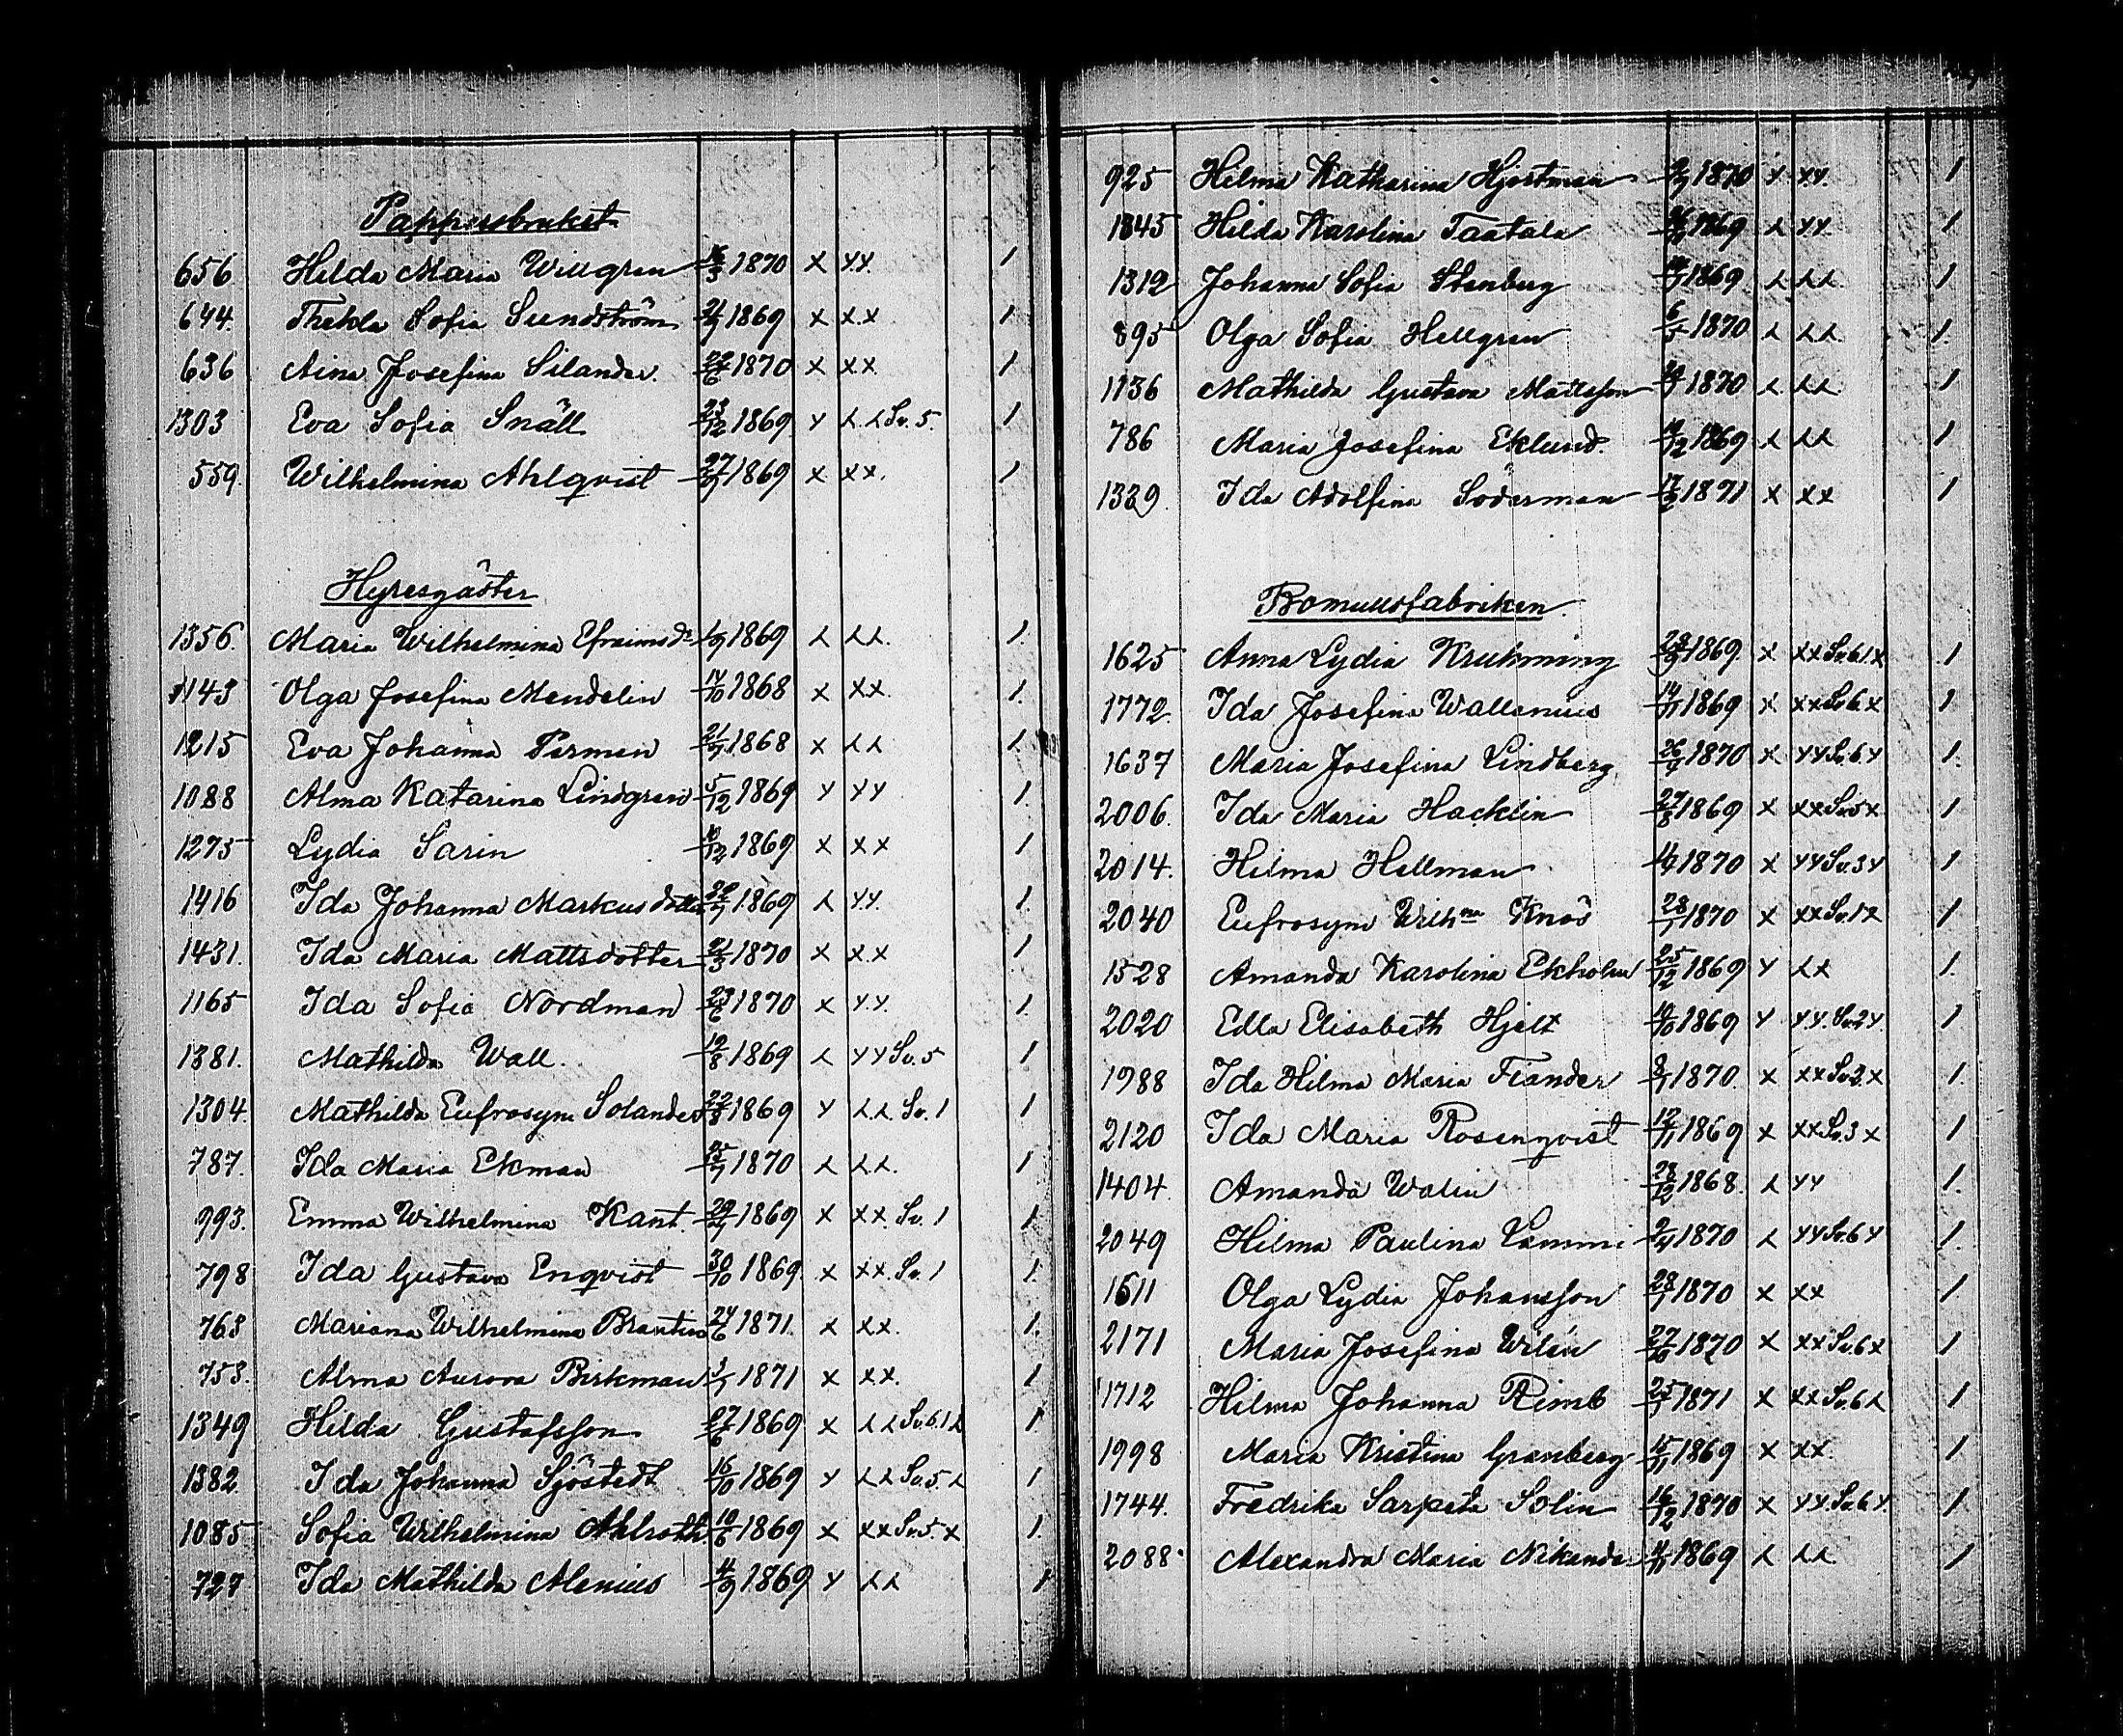 Pappersbruket
656 Hilda Maria Willgren 16/3 1870 x xx. 1
644. Thekla Sofia Sundström 21/9 1869 x x.x 1.
636 Aina Josefina Silander. 22/6 1870 x xx 1
1303 Eva Sofia Snäll 23/12 1869 x x.x Sv. 5. 1
559. Wilhelmina Ahlqvist 27/9 1869 x xx. 1
Hyresgäster
1356. Maria Wilhelmina Efraimsdr 1/9 1869 x xx. 1.
1143 Olga Josefina Mendelin 14/10 1868 x xx. 1.
1215 Eva Johanna Fermen 21/7 1868 x xx 1.
1088 Alma Katarina Lindgren 5/12 1869 x xx 1.
1275 Lydia Sarin /12 1869 x xx 1
1416 Ida Johanna Markusdotter 1869 x xx. 1.
1431. Ida Maria Mattsdotter 21/3 1870 x x.x 1
1165 Ida Sofia Nordman 23/6 1870 x xx. 1.
1381. Mathilda Wall. 19/8 1869 x xx Sv. 5 1
1304. Mathilda Eufrosyne Solander 1869 x x.x Sv. 1 1
787. Ida Maria Ekman 1870 x xx. 1
993. Emma Wilhelmina Kant. 1869 x xx. Sv. 1 1.
798 Ida Gustava Enqvist 30/10 1869. x xx. Sv. 1 1.
763 Mariana Wilhelmina Brantin 24/6 1871. x xx. 1.
753. Alma Aurora Birkman 3/1 1871 x xx. 1
1349 Hilda Gustafsson 27/6 1869 x xx Sv. 6.1 x 1
1382 Ida Johanna Sjöstedt 16/10 1869 x xx Sv. 5 x 1
1085 Sofia Wilhelmina Ahlroth. 10/6 1869 x xx Sv. 5. x 1.
727 Ida Mathilda Alenius 4/9 1869 x xx 1
925 Hilma Katharina Hjortman 1870 x xx. 1
1345 Hilda Karolina Taatala 1869 x xx 1
1312 Johanna Sofia Stenberg 1869 x xx. 1
895 Olga Sofia Hellgren 6/5 1870 x xx. 1.
1136 Mathilda Gustava Mattsson 1870 x xx 1
786 Maria Josefina Eklund. /12 1869 x xx 1
1339. Ida Adolfina Söderman 17/2 1871 x xx 1
Bomullsfabriken
1625 Anna Lydia Kruhming 28/9 1869. x xx Sv. 6.1 x 1
1772. Ida Josefina Wallenius 14/11 1869 x xx Sv. 6 x 1
1637 Maria Josefina Lindberg 26/7 1870 x xx Sv. 6 x 1.
2006. Ida Maria Hacklin 27/8 1869 x xx Sv. 5 x 1
2014. Hilma Hellman 1870 x xx Sv. 3 x 1
2040 Eufrosyne Wilhna Knös 28/1 1870 x xx Sv. 1 x 1
1528 Amanda Karolina Ekholm 25/12 1869 x xx 1.
2020 Edla Elisabeth Hjelt 10/10 1869 x xx. Sv. 2 x 1
1988 Ida Hilma Maria Fiander 8/1 1870. x xx Sv. 2. x 1.
2120 Ida Maria Rosenqvist 12/11 1869 x xx Sv. 3 x 1
1404. Amanda Walin 28/12 1868. x xx 1.
2049 Hilma Paulina Lammi 2/4 1870 x xx Sv. 6 x 1.
1611 Olga Lydia Johansson 28/1 1870 x xx 1
2171 Maria Josefina Wilén 27/10 1870 x xx Sv. 6 x 1
1712 Hilma Johanna Rimb 25/1 1871 x xx Sv. 6 x 1
1998 Maria Kristina Granberg 15/11 1869 x xx. 1
1744. Fredrika Sarpeta Solin 16/12 1870 x xx Sv. 6 x. 1
2088. Alexandra Maria Nikander 1869 x xx. 1